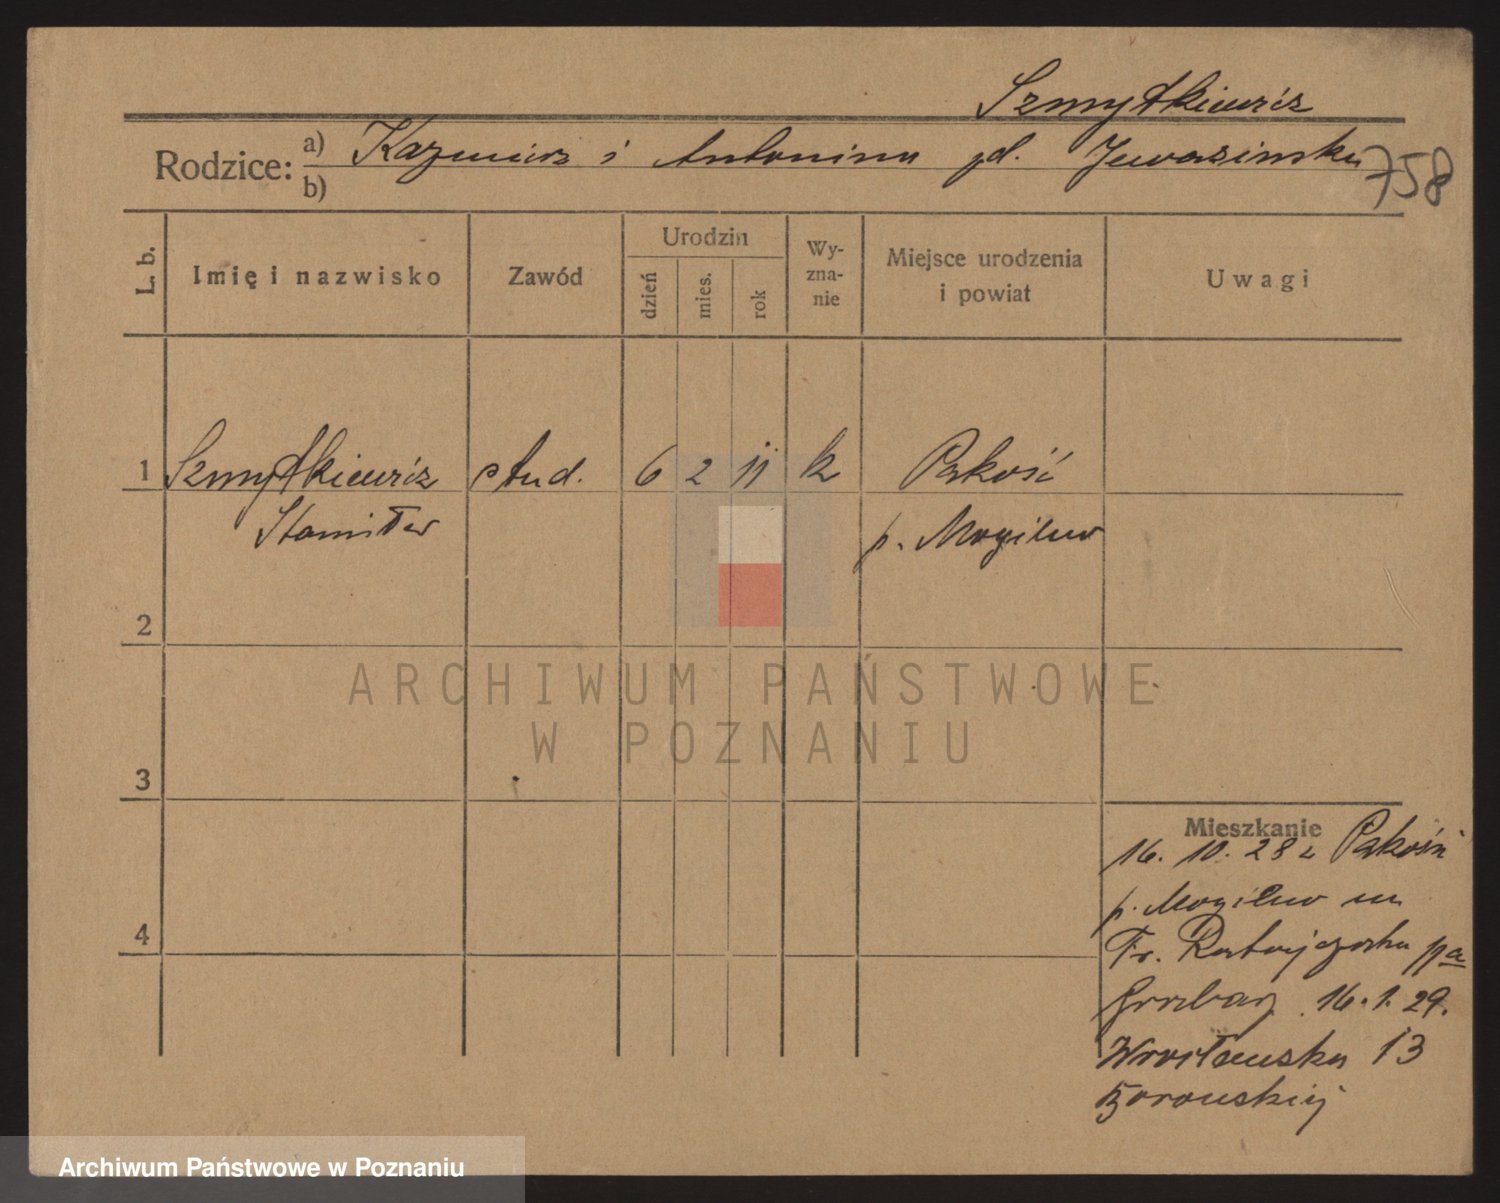 Szmytkiewicz
Rodzice: a) Kazimierz i Antonina zd. Jewasinska
b)
758
L. b.
Imię i nazwisko
Zawód
Urodzin
dzień
mies.
rok
Wy-
zna-
nie
Miejsce urodzenia
i powiat
Uwagi
1 Szmytkiewicz stud. 6 2 11 k Pakość
Stanisław p. Mogilno
2
ARCHIWUM PAŃSTWOWE
W POZNANIU
3
Mieszkanie
16. 10. 28 z Pakości
p. Mogilno
4
Fr. Ratajczaka
16. 1. 29.
Wrocławska 13
Borowskiej
Archiwum Państwowe w Poznaniu